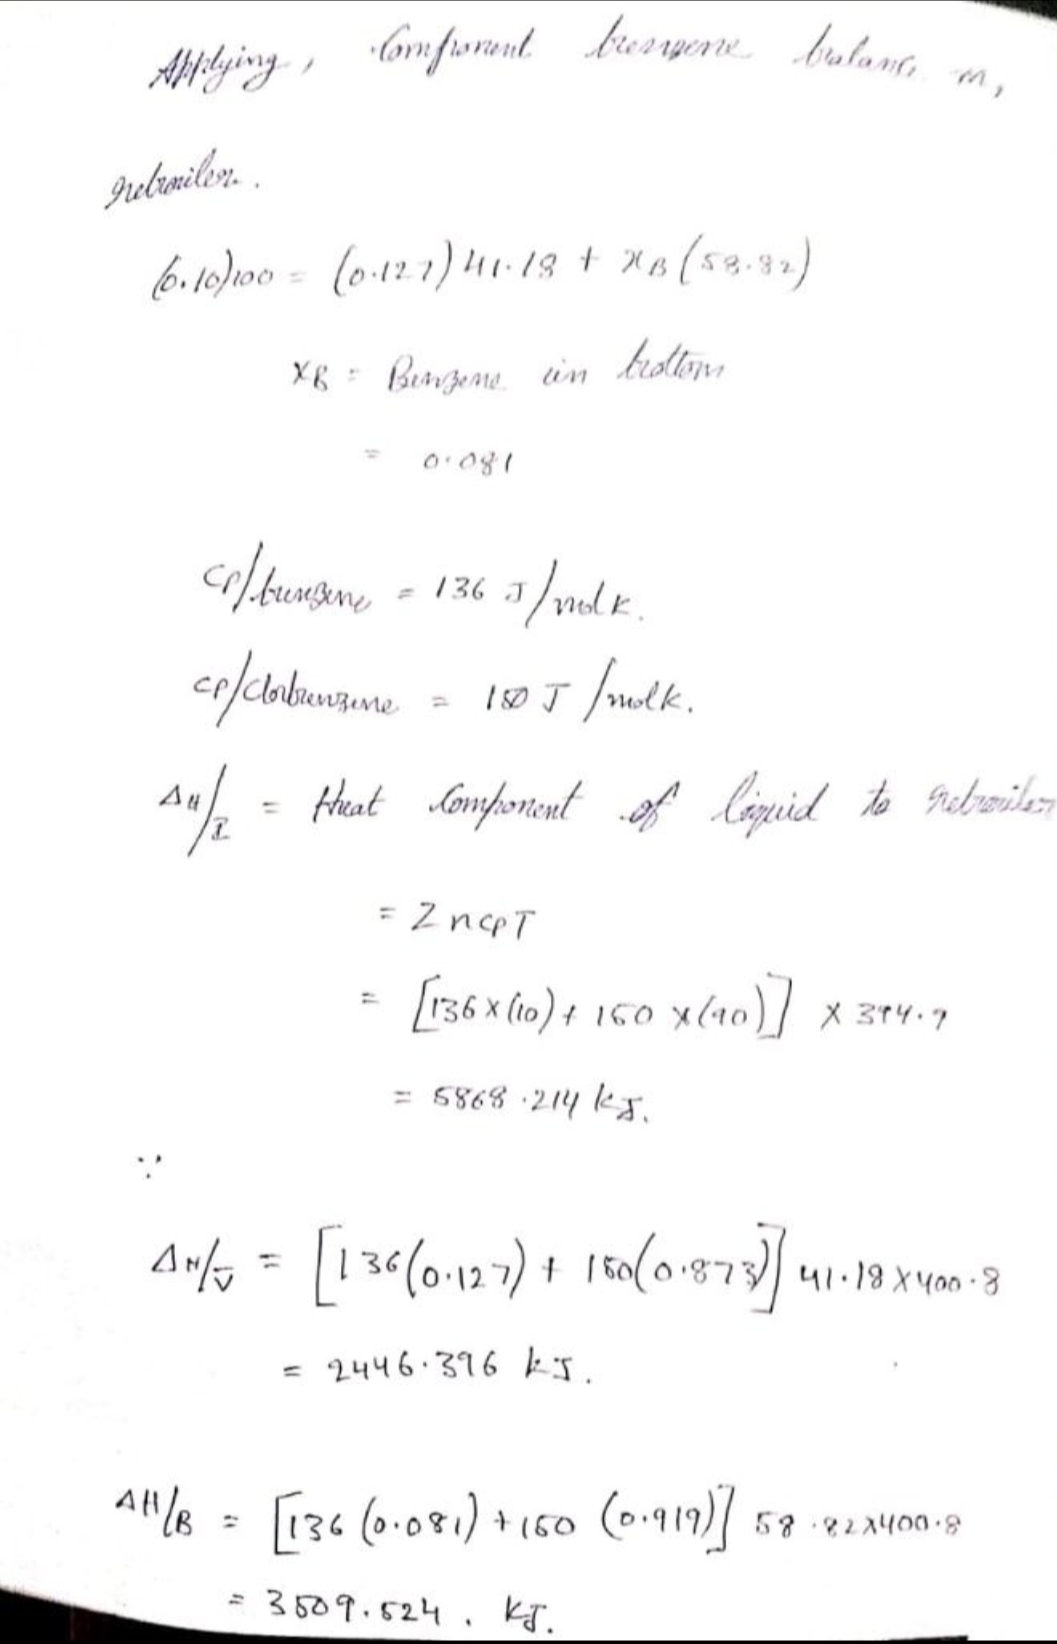 Applying, Component benzene balance in,
reboiler.
(0.10)100 = (0.127) 41.18 + xB (58.82)
XB = Benzene in bottom
= 0.081
CP/benzene = 136 J/molk.
CP/Clorbenzene = 150 J/molk.
ΔH/I = Heat Component of liquid to reboiler
= Σ ncpT
= [136 x (10) + 150 x (90)] x 394.9
= 5868.214 kJ.
∵
ΔH/V̅ = [136(0.127) + 150(0.873)] 41.18 x 400.8
= 2446.396 kJ.
ΔH/B = [136 (0.081) + 150 (0.919)] 58.82 x 400.8
= 3509.524. KJ.